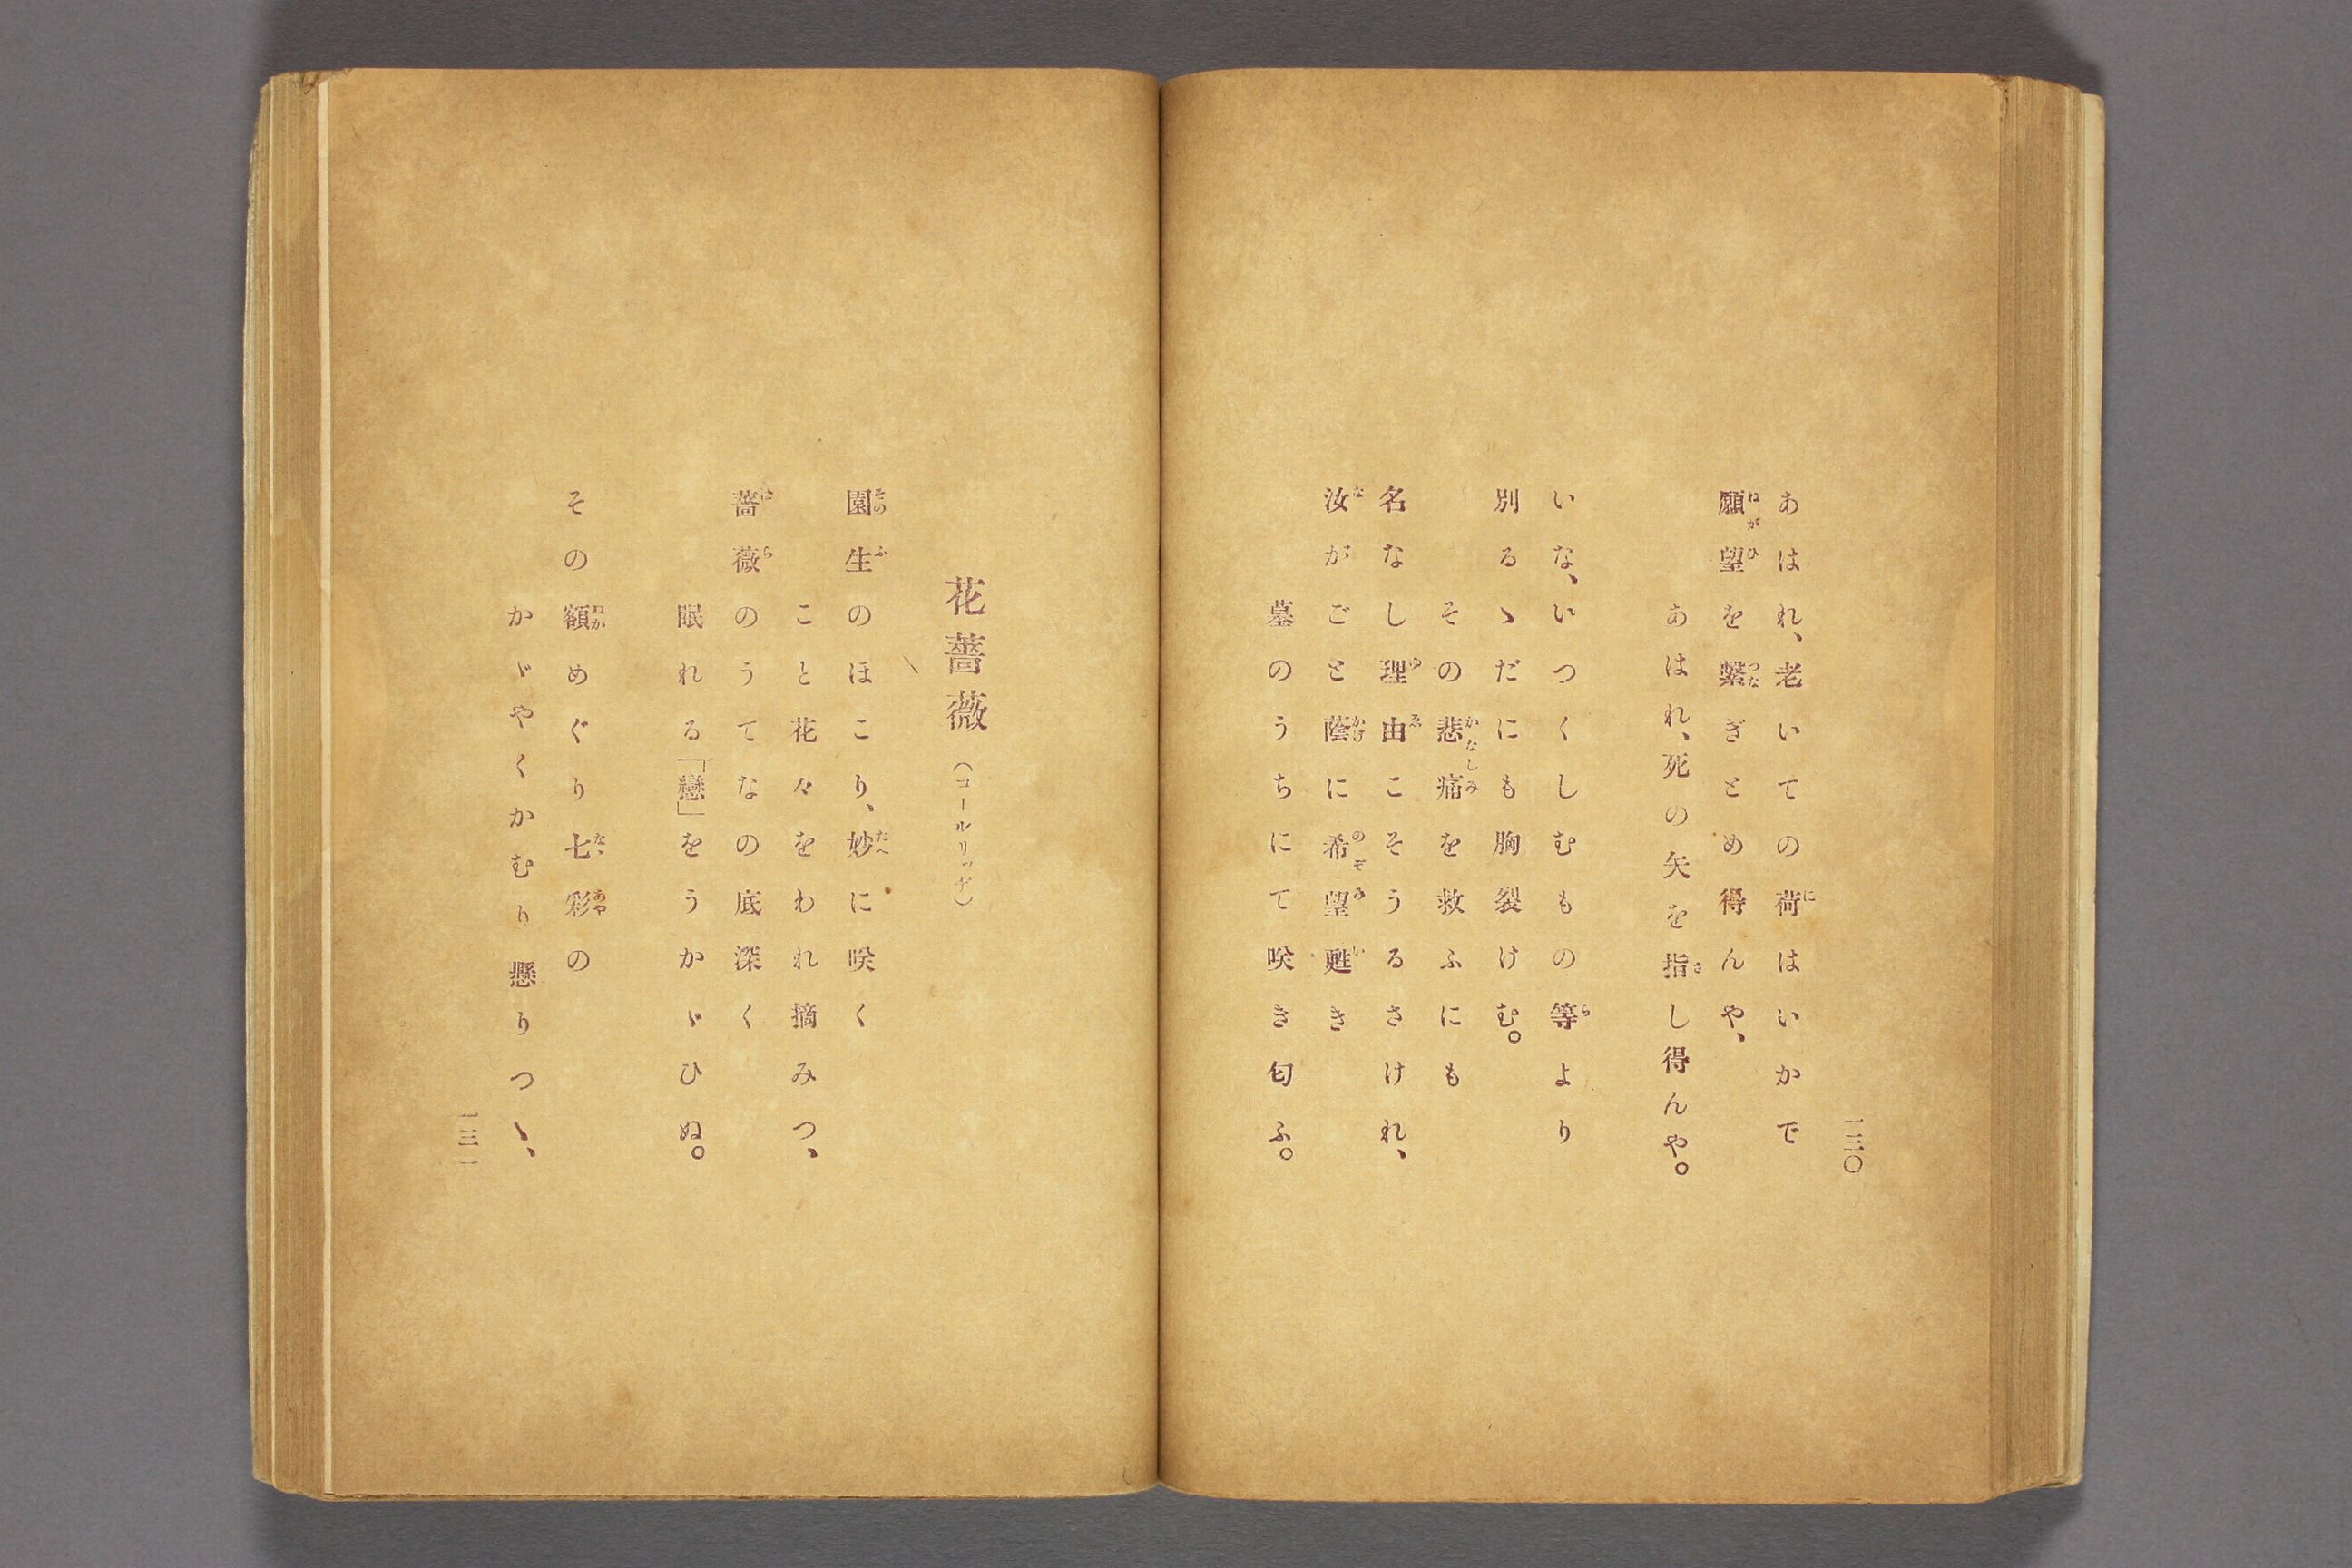 一三〇
あはれ、老いての荷はいかで
願望を繋ぎとめ得んや、
あはれ、死の矢を指し得んや。
いな、いつくしむもの等より
別るゝだにも胸裂けむ。
その悲痛を救ふにも
名なし理由こそうるさけれ、
汝がごと蔭に希望甦き
墓のうちにて咲き匂ふ。
花薔薇(コールリッヂ)
園生のほこり、妙に咲く
こと花々をわれ摘みつ、
薔薇のうてなの底深く
眠れる「戀」をうかゞひぬ。
その額めぐり七彩の
かゞやくかむり懸りつゝ、
一三一